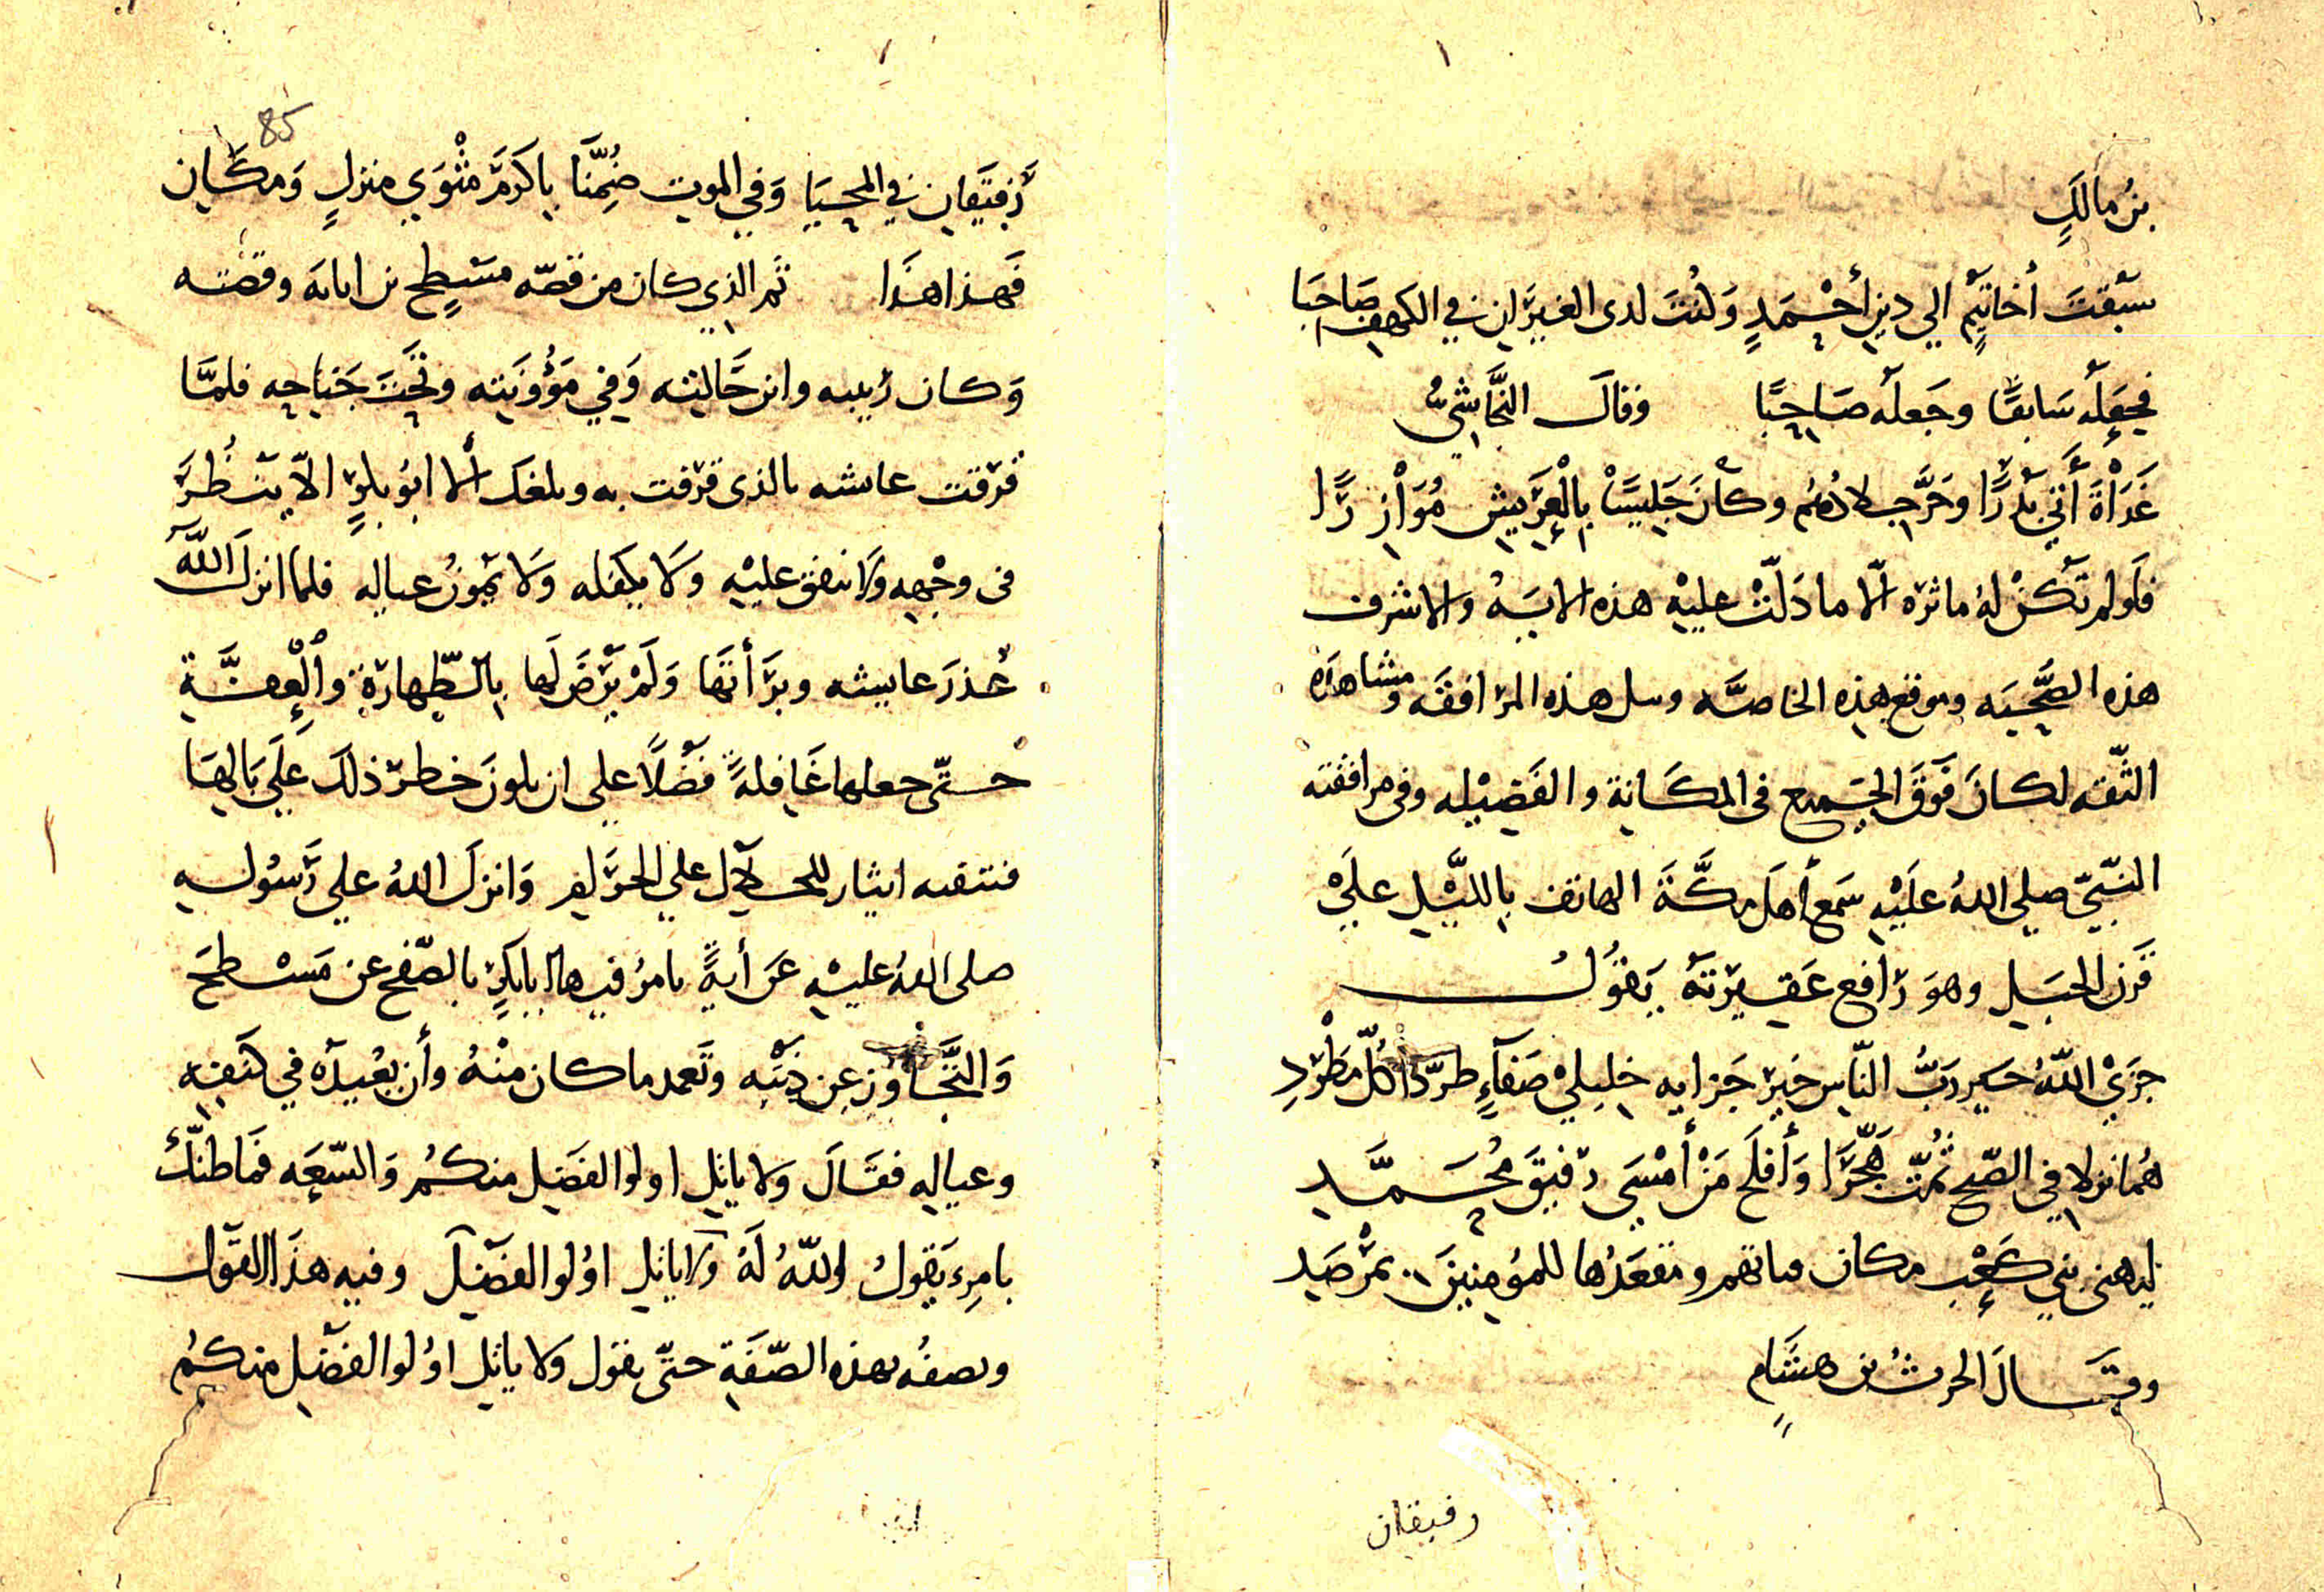 بن مالكٍ
سَبقتَ أخاتيمٍ الي دين أحْمَدٍ وَكُنتَ لدى الغيرَان في الكهف صَاحبَا
فجعَله سَابقًا وجَعله صَاحِبًا وقال النجَّاشيُّ
غَدَاةَ أتى بَدْرًا وكَانَ جَلِيسًا بِالْعَريشِ مُوَازِرًا
فلَولم تكُنْ لهُ ماثره الّا ما دَلّتْ عليْهِ هذه الايَهُ والاشرف
هذه الصَّحْبَه وموقع هذه الخاصَّه ومثل هذه المرَافقَه ومشاهده
الثّقه لكانَ فَوقَ الجَميع في المكَانة والفَضِيْله وفى مرافقته
النبّيّ صلي اللهُ عَلَيْهِ سَمع أهلَ مكَّةَ الهاتف بِالليْل علَى
قَرن الجبَل وهوَ رَافع عَقيرتهَ يَقوُلُ
جزَيْ اللّهُ خير رَبُّ النّاسِ خيرَ جَزايه خليليْ
هُمانزلا في الصّبح ثُمتّ هَجّرَا وَأفلَح مَنْ أمْسَي رَفيقَ مُحَمَّدِ
ليهنى بني كعْبٍ مكان فتاتهم ومَقعَدُها للمُؤمِنينَ بمَرْصَد
وقَالَ الحرثُ بن هشَامٍ
رفيقان
85
رَفيَقان في المحيَا وَفي الموت ضُمِّنَا باكرَمَ مَثْوَي منزلٍ وَمكَان
فَهذا هذَا ثم الذي كان من قصّه مسْطحٍ بن اثاثه وقصّته
وَكان رَبيبه وابن خَالته وَفي مَؤُونَته وتحْتَ جَنَاحِه فلمَّا
قرَفت عايشه بالذى قرفت به وبلغك ألا ابُو بكرٍ الاّ ينْظُرَ
في وجْهِه ولا ينفق عليْهِ وَلا يكفله وَلا يَمُونُ عياله فلما انزلَ اللّهُ
عُذرَ عايشه وبرَّأتهَا وَلَمْ يَرْضَ لَها بِالطّهارَةِ والْعِفَّةِ
حتّى جعلها غَافِلةً فَضْلاً علي ان يكونَ خطرَ ذلكَ علَي بَالِهَا
فتنفيه ايثار للحلال علي الحرَام وَانزلَ اللهُ علي رَسُولِه
صلى اللهُ عليْهِ عَن أيةً يامرُ فيها ابا بَكرٍ بالصّفح عن مَسْطحَ
وَالتَّجَاوز عن ذَنبْه وتغمد ما كان منْهُ وأن يُعْيدَهُ في كنَفِه
وعيالِه فقَالَ وَلا ياتل اولوا الفَضل منكُم وَالسّعَه فَما ظنُّكَ
بامرِءٍ يَقولُ اللّهُ لَهُ وَلا ياتل اوُلوا الفَضْلَ وفيه هذَا القَول
ويصفُه بهذه الصّفَةِ حتّى يقول ولا ياتل اوُلوا الفضْل منكُم